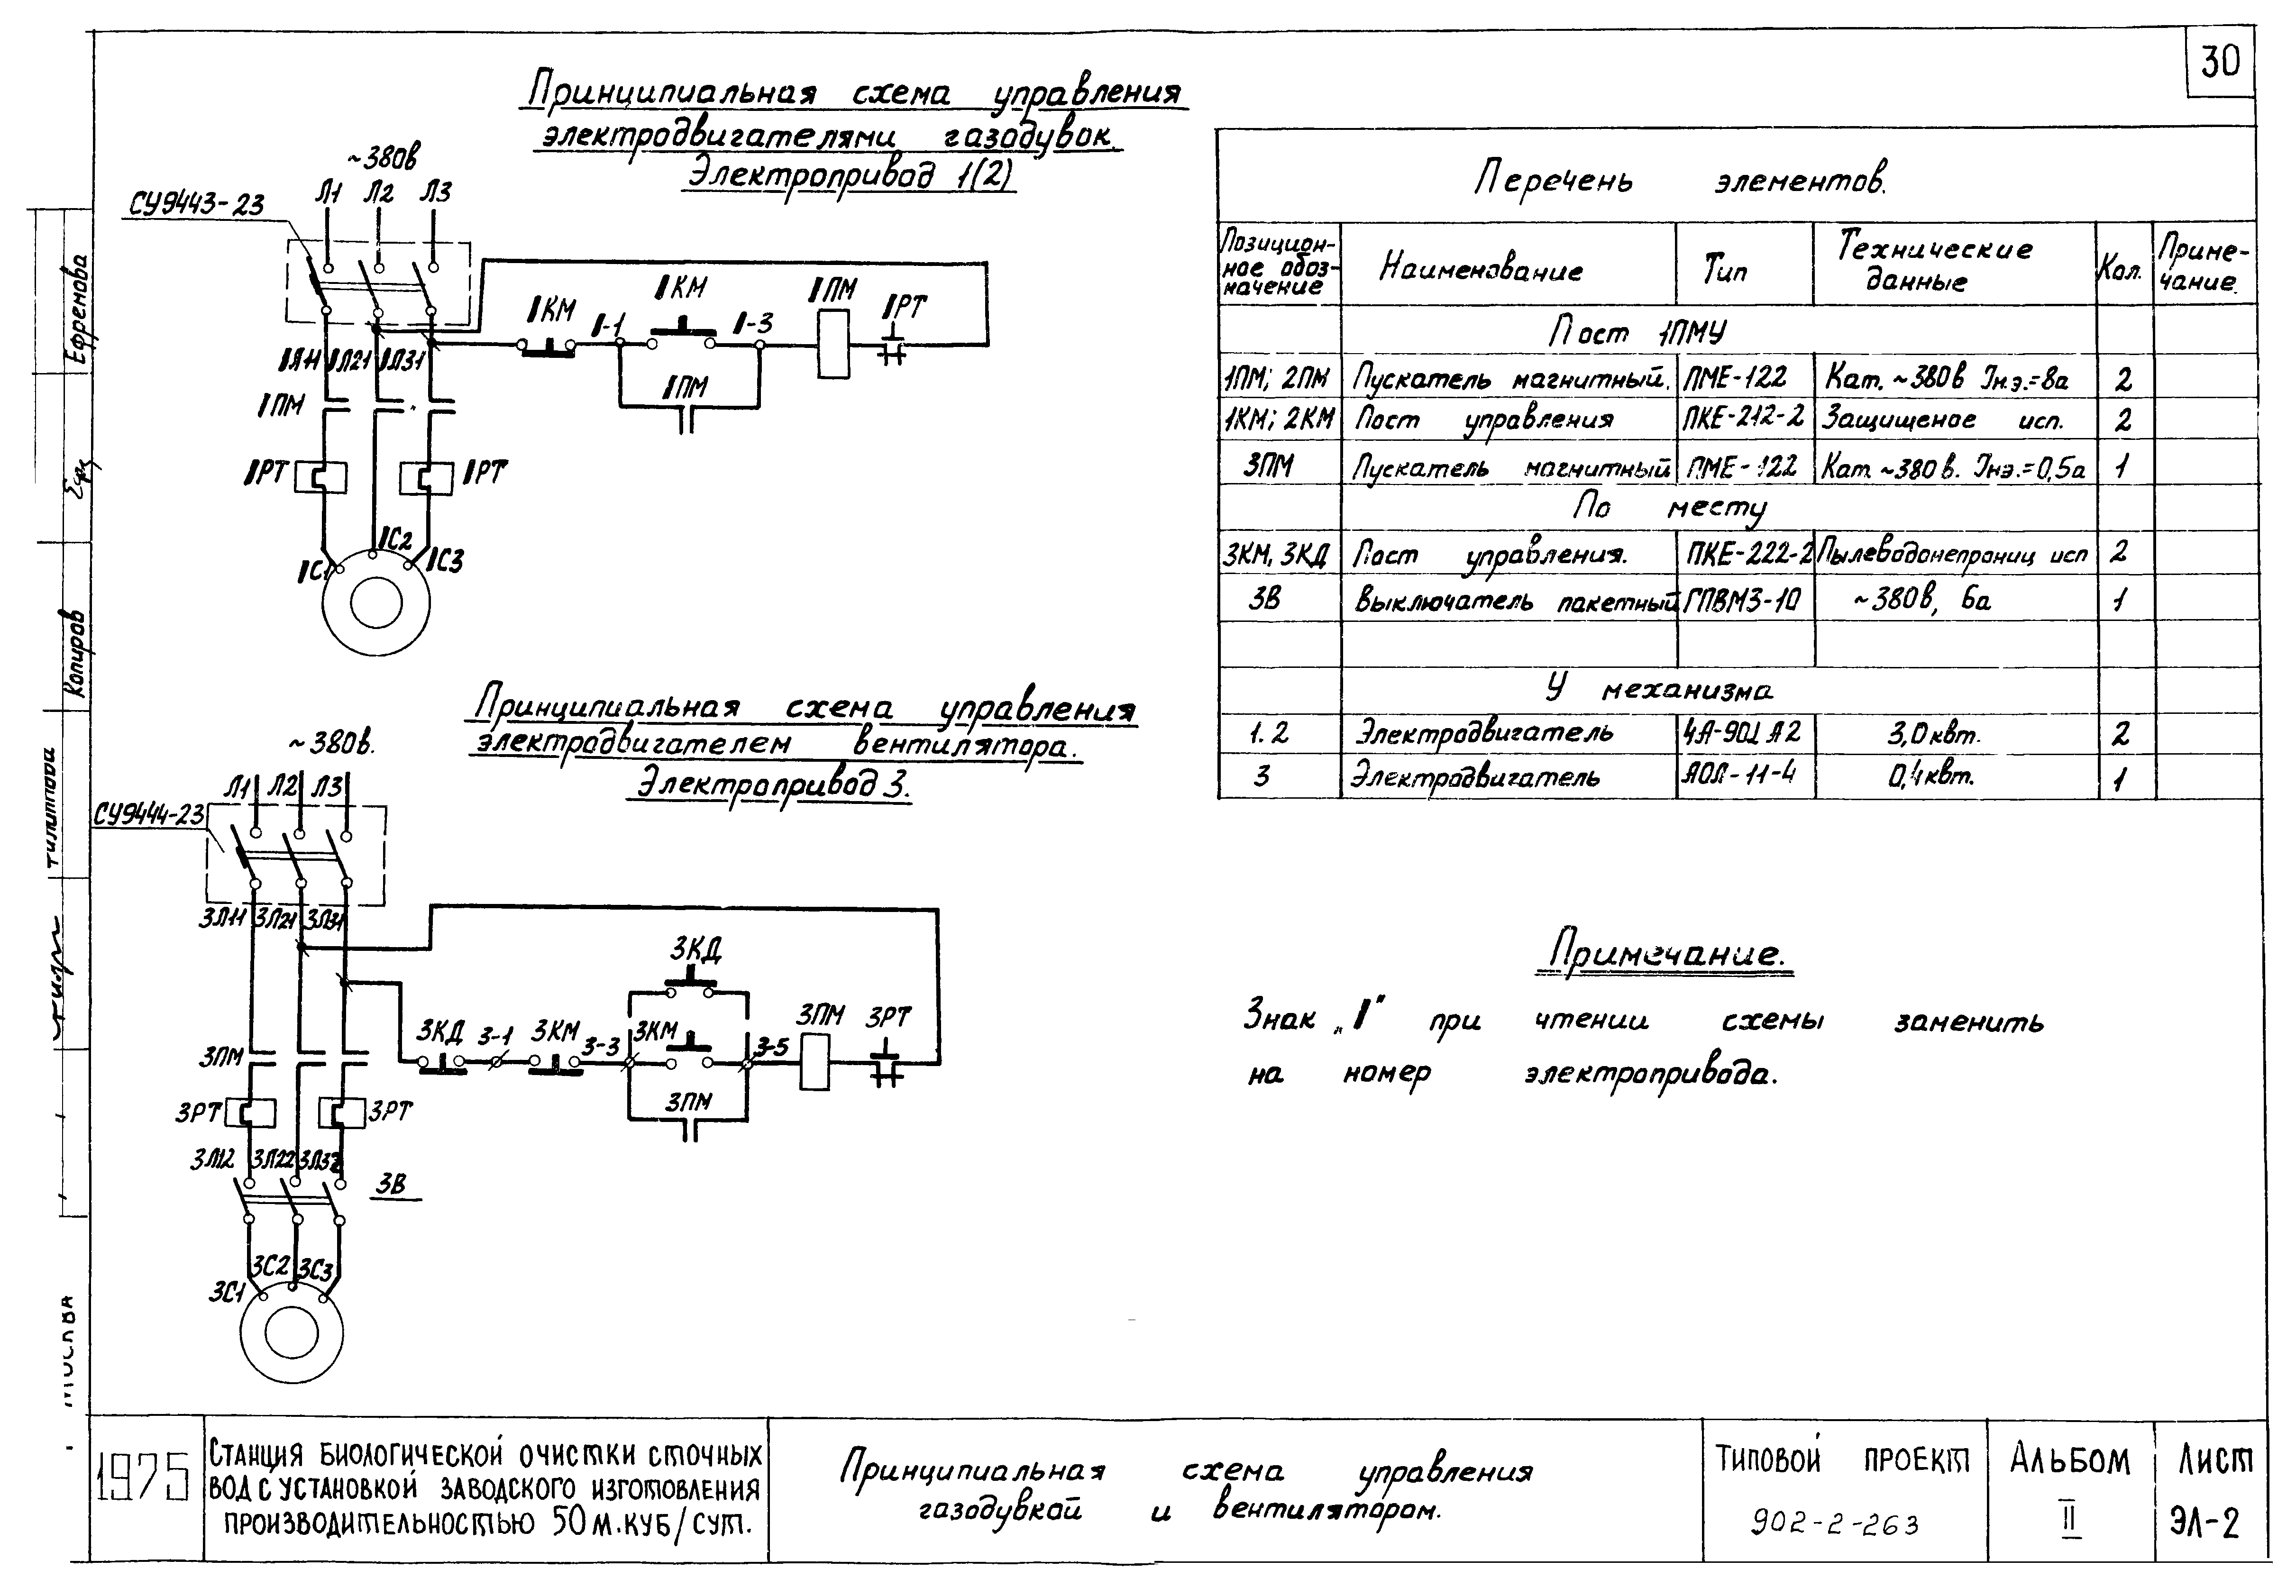 30
Принципиальная схема управления
электродвигателями газодувок.
Электропривод 1(2)
~380в
Л1 Л2 Л3
СУ9443-23
IЛ11 IЛ21 IЛ31
IКМ
I-1
IКМ
I-3
IПМ
IРТ
IПМ
IПМ
IРТ
IРТ
IС1
IС2
IС3
Принципиальная схема управления
электродвигателем вентилятора.
Электропривод 3.
~380в.
Л1 Л2 Л3
СУ9444-23
3Л11 3Л21 3Л31
3КД
3КД
3-1
3КМ
3-3
3КМ
3-5
3ПМ
3РТ
3ПМ
3ПМ
3РТ
3РТ
3Л12 3Л22 3Л32
3В
3С1
3С2
3С3
Перечень элементов.
Позицион-
ное обоз-
начение
Наименование
Тип
Технические
данные
Кол.
Приме-
чание.
Пост 1ПМУ
1ПМ; 2ПМ Пускатель магнитный. ПМЕ-122 Кат. ~380в Iн.э.=8а 2
1КМ; 2КМ Пост управления ПКЕ-212-2 Защищеное исп. 2
3ПМ Пускатель магнитный ПМЕ-122 Кат. ~380в. Iнэ.=0,5а 1
По месту
3КМ, 3КД Пост управления. ПКЕ-222-2 Пылеводонепрониц исп 2
3В Выключатель пакетный ГПВМ3-10 ~380в, 6а 1
У механизма
1.2 Электродвигатель 4А-90L А2 3,0квт. 2
3 Электродвигатель АОЛ-11-4 0,4квт. 1
Примечание.
Знак „I" при чтении схемы заменить
на номер электропривода.
Ефренова
Копиров
Москва
1975
Станция биологической очистки сточных
вод с установкой заводского изготовления
производительностью 50м.куб/сут.
Принципиальная схема управления
газодувкой и вентилятором.
Типовой проект
902-2-263
Альбом
II
Лист
ЭЛ-2